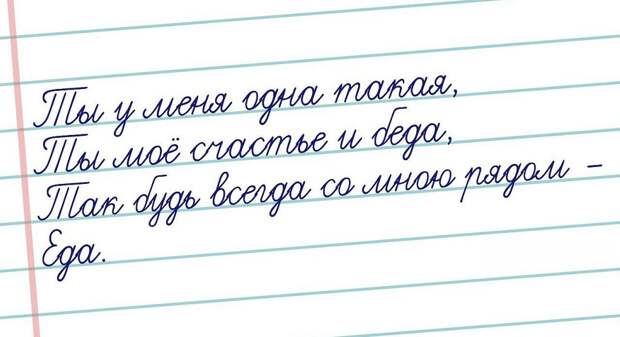 Ты у меня одна такая,
Ты моё счастье и беда,
Так будь всегда со мною рядом –
Еда.